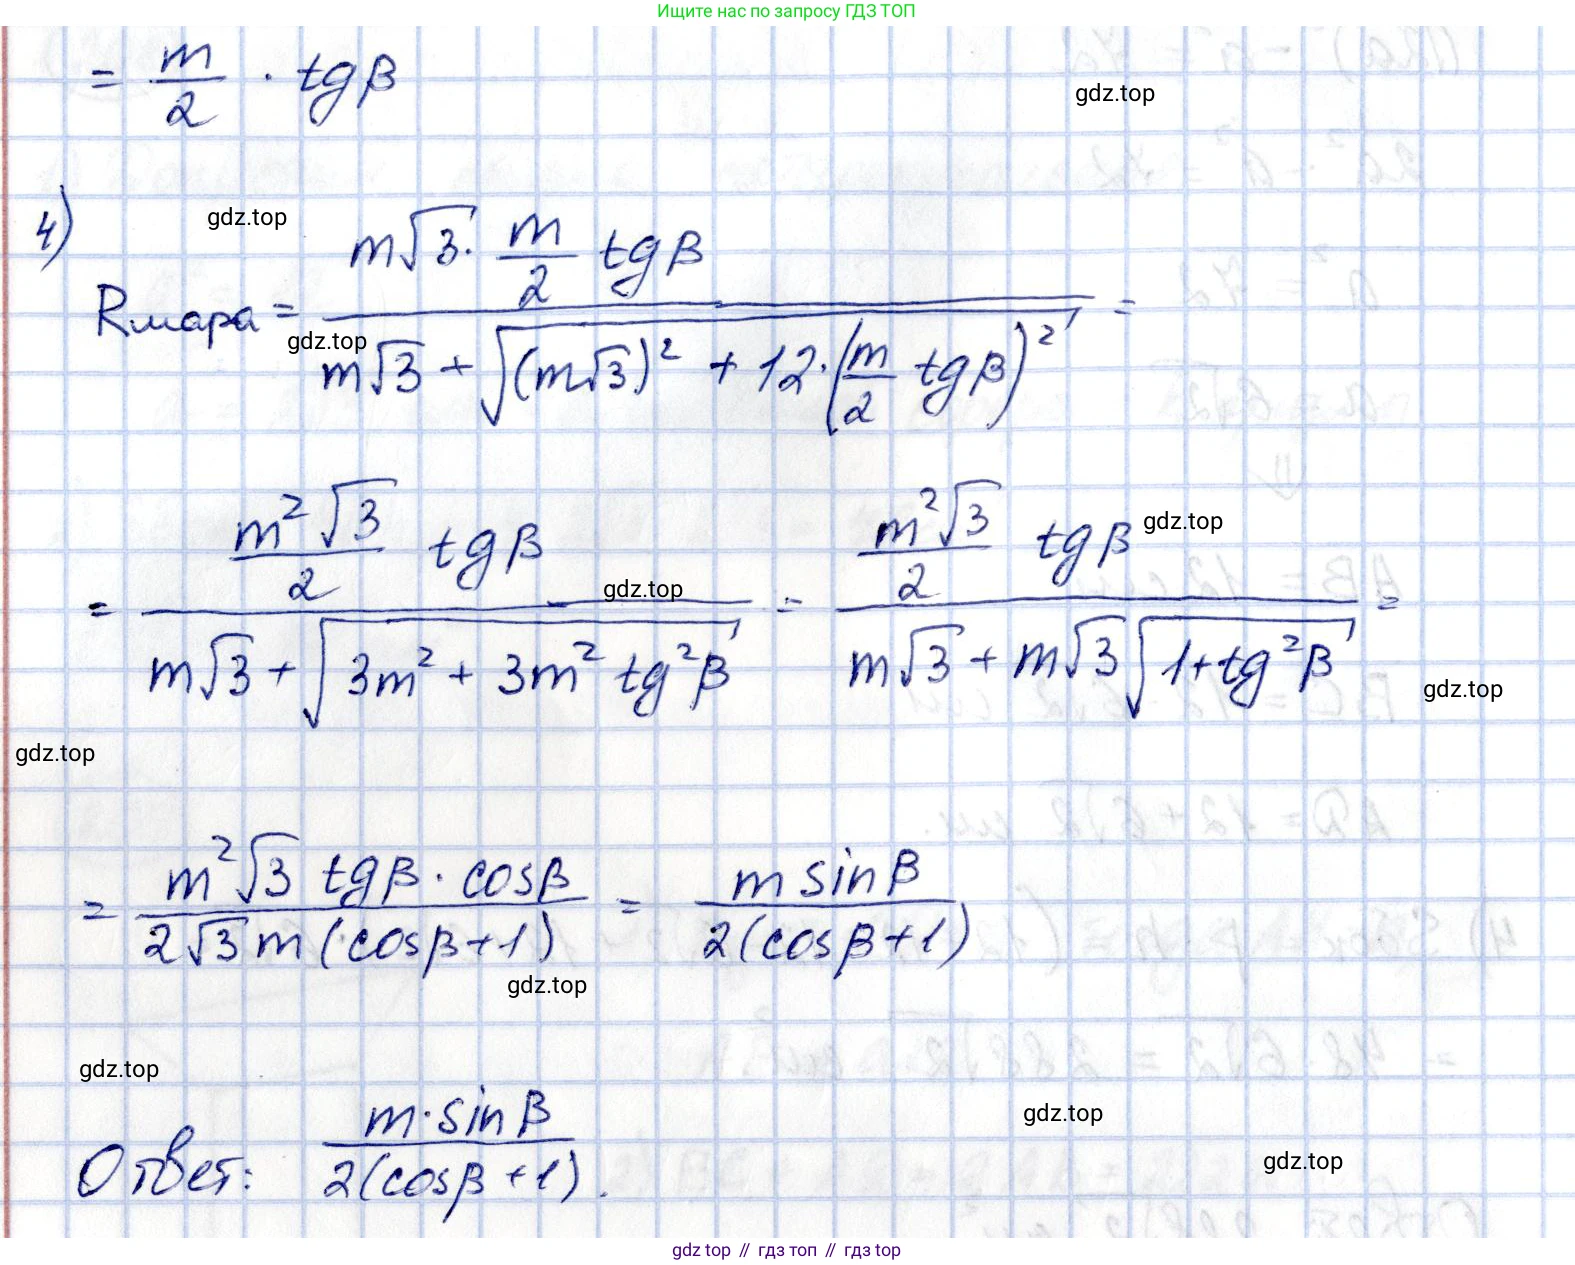 Ищите нас по запросу ГДЗ ТОП
= m/2 · tgβ
gdz.top
4)
gdz.top
Rшара = (m√3 · m/2 tgβ) / (m√3 + √((m√3)² + 12·(m/2 tgβ)²)) =
gdz.top
= (m²√3/2 tgβ) / (m√3 + √(3m² + 3m² tg²β)) = (m²√3/2 tgβ) / (m√3 + m√3 √(1+tg²β)) =
gdz.top
gdz.top
gdz.top
gdz.top
= (m²√3 tgβ · cosβ) / (2√3 m (cosβ+1)) = (m sinβ) / (2(cosβ+1))
gdz.top
gdz.top
gdz.top
Ответ: (m·sinβ) / (2(cosβ+1)).
gdz.top
gdz top // гдз топ // гдз top